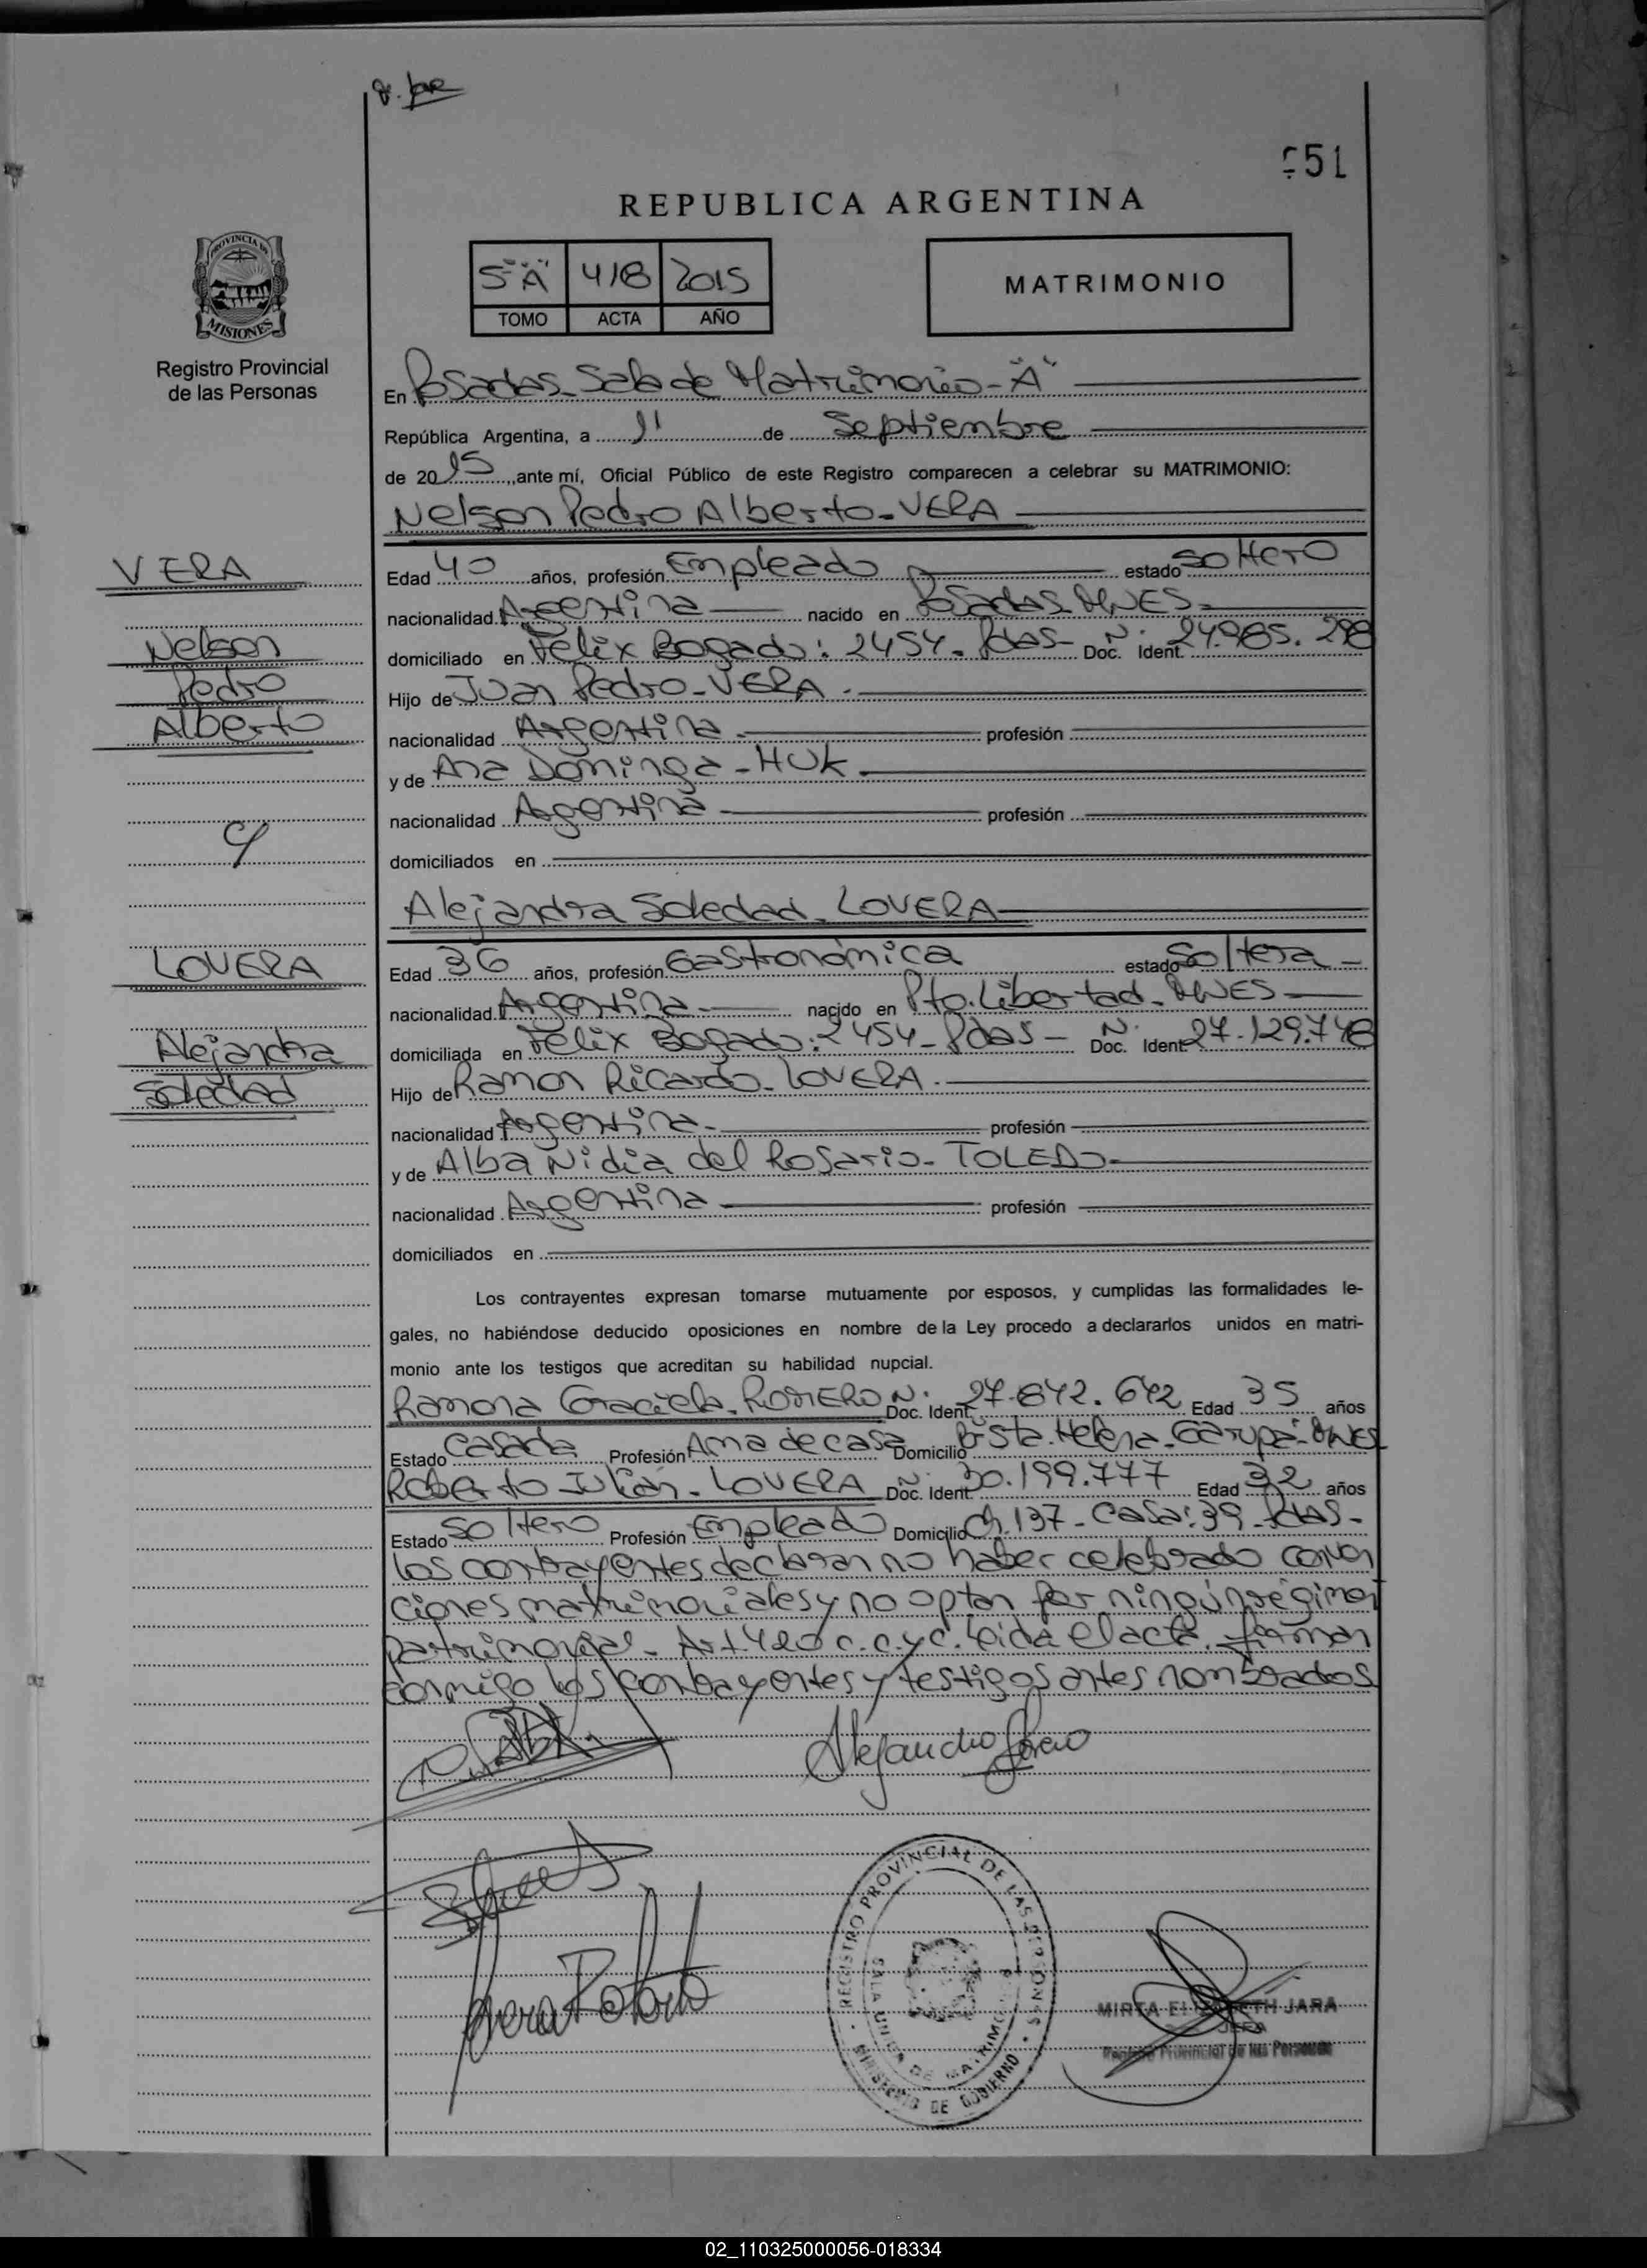 051
REPUBLICA ARGENTINA
5º "A" 418 2015
TOMO ACTA AÑO
MATRIMONIO
PROVINCIA DE MISIONES
Registro Provincial
de las Personas
En Posadas-Sala de Matrimonio-"A"
República Argentina, a 11 de Septiembre
de 2015, ante mí, Oficial Público de este Registro comparecen a celebrar su MATRIMONIO:
Nelson Pedro Alberto-VERA
VERA
Nelson
Pedro
Alberto
Edad 40 años, profesión Empleado estado Soltero
nacionalidad Argentina nacido en Posadas.MNES-
domiciliado en Felix Bogado: 2454. Pdas- Doc. Ident. Nº 24.985.298
Hijo de Juan Pedro-VERA.
nacionalidad Argentina- profesión
y de Ana Dominga-HUK.
nacionalidad Argentina profesión
domiciliados en
c/
Alejandra Soledad-LOVERA
LOVERA
Alejandra
Soledad
Edad 36 años, profesión Gastronómica estado Soltera-
nacionalidad Argentina nacido en Pto.Libertad-MNES-
domiciliada en Felix Bogado: 2454-Pdas- Doc. Ident. Nº 27.129.748
Hijo de Ramon Ricardo-LOVERA.
nacionalidad Argentina- profesión
y de Alba Nidia del Rosario-TOLEDO-
nacionalidad Argentina profesión
domiciliados en
Los contrayentes expresan tomarse mutuamente por esposos, y cumplidas las formalidades le-
gales, no habiéndose deducido oposiciones en nombre de la Ley procedo a declararlos unidos en matri-
monio ante los testigos que acreditan su habilidad nupcial.
Ramona Graciela-ROMERO Doc. Ident. Nº 27.842.642 Edad 35 años
Estado Casada Profesión Ama de casa Domicilio Bº Sta.Helena-Garupá-MNES
Roberto Julián-LOVERA Doc. Ident. Nº 30.199.777 Edad 32 años
Estado Soltero Profesión Empleado Domicilio Ch.137-Casa:39-Pdas-
los contrayentes declaran no haber celebrado conven
ciones matrimoniales y no optan por ningún régimen
patrimonial-Art.420 c.c.yc. Leida el acta, firman
conmigo los contrayentes y testigos antes nombrados
Alejandra Lovera
Lovera Roberto
REGISTRO PROVINCIAL DE LAS PERSONAS
SALA UNICA DE MATRIMONIO
MINISTERIO DE GOBIERNO
MIRTA ELIZABETH JARA
JEFA
Registro Provincial de las Personas
02_110325000056-018334